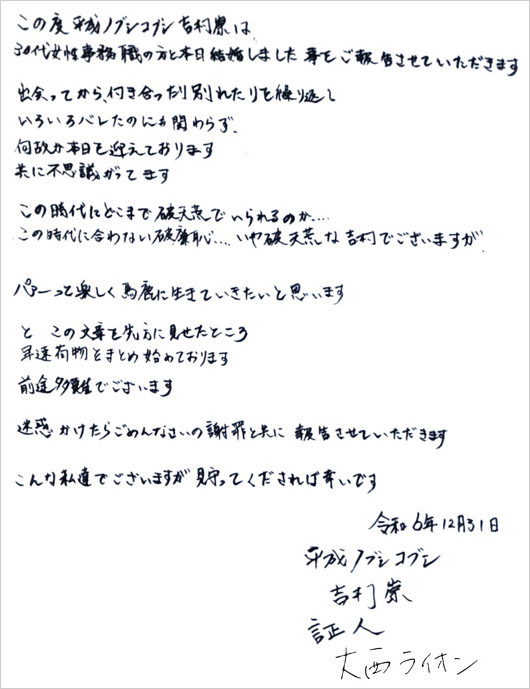 この度 平成ノブシコブシ 吉村崇は
30代女性事務職の方と本日結婚しました事をご報告させていただきます
出会ってから、付き合ったり別れたりを繰り返し
いろいろバレたのにも関わらず、
何故か本日を迎えております
共に不思議がってます
この時代にどこまで破天荒でいられるのか....
この時代に合わない破廉恥.... いや破天荒な吉村でございますが
パァーって楽しく馬鹿に生きていきたいと思います
と この文章を先方に見せたところ
早速荷物をまとめ始めております
前途多難でございます
迷惑かけたらごめんなさいの謝罪と共に 報告させていただきます
こんな私達でございますが 見守ってくだされば幸いです
令和6年12月31日
平成ノブシコブシ
吉村崇
証人
大西ライオン